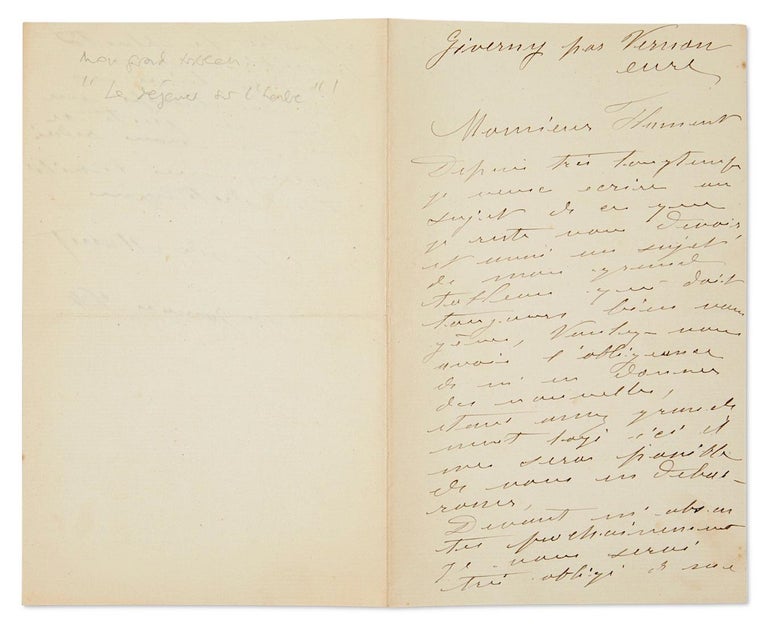 mon grand tableau.
"Le déjeuner sur l'herbe"!
Giverny par Vernon
eure
Monsieur Flament
Depuis très longtemps
je veux ecrire au
sujet de ce que
je reste vous devoir
et aussi au sujet
de mon grand
tableau qui doit
toujours bien vous
gêner, Voulez-vous
avoir l'obligeance
de m'en donner
des nouvelles,
étant assez grande
ment logé ici il
me sera possible
de vous en debar-
rasser,
Devant m'absen
ter prochainement
je vous serais
très obligé de me